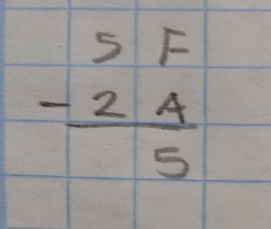 5 F
- 2 A
5